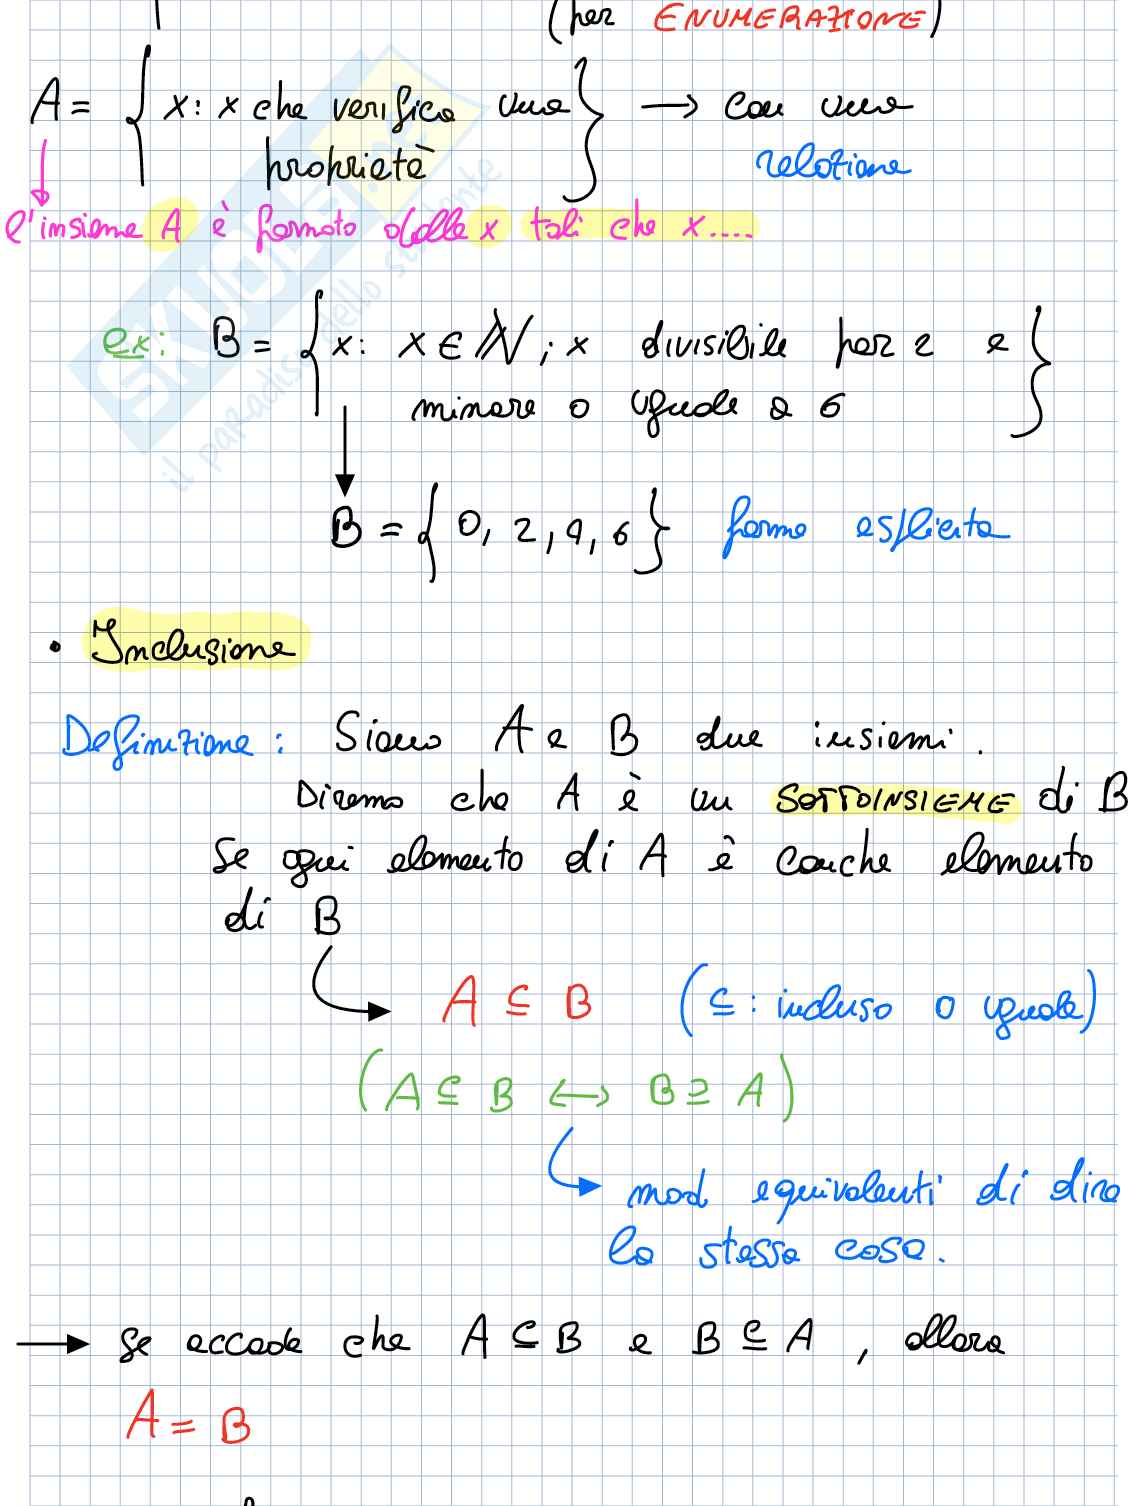 (per ENUMERAZIONE)
A = { x : x che verifica una proprietà } → con una
relazione
l'insieme A è formato dalle x tali che x....
ex: B = { x : x ∈ ℕ ; x divisibile per 2 e
minore o uguale a 6 }
B = { 0, 2, 4, 6 } forma esplicita
• Inclusione
Definizione : Siano A e B due insiemi.
Diremo che A è un SOTTOINSIEME di B
se ogni elemento di A è canche elemento
di B
A ⊆ B (⊆ : incluso o uguale)
(A ⊆ B ↔ B ⊇ A)
mod equivalenti di dire
la stessa cosa.
→ se accade che A ⊆ B e B ⊆ A , allora
A = B
SKUOLA.net
il paradiso dello studente